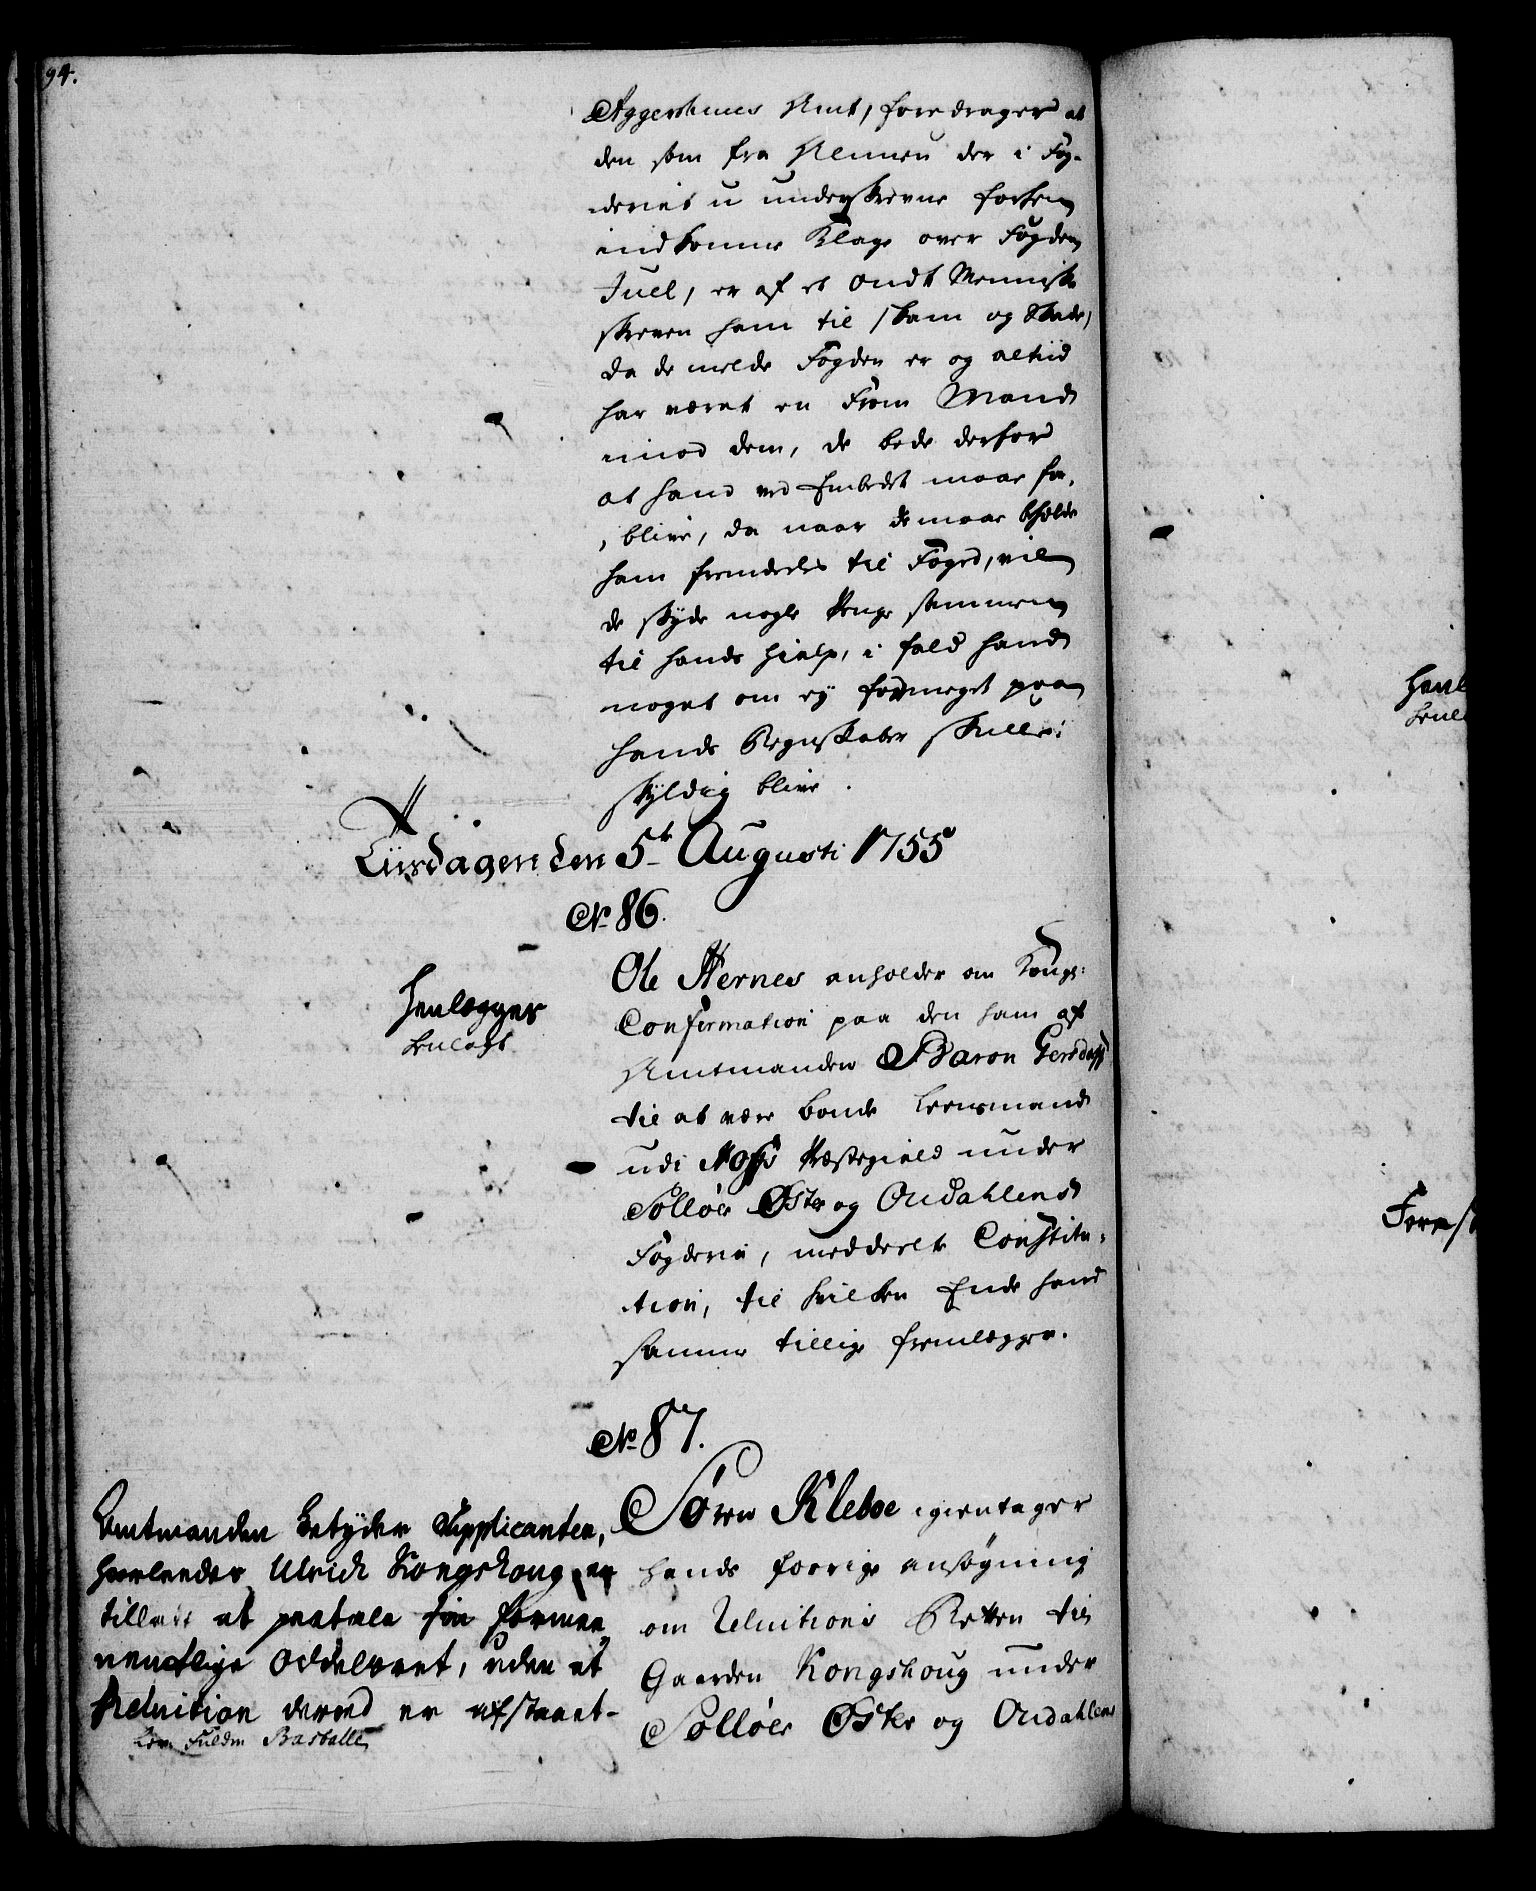 94.
Aggershuus Amt, foredrager at
den som fra Almuen der i Fog-
deriet u underskrevne forhen
indkomne Klage over Fogden
Juel, er af et ondt Menniske
skreven ham til skam og Skade,
da de melde Fogden er og altiid
har været en From Mand
imod dem, de bede derfor
at hand ved Embedet maae for-
blive, da naar de maae beholde
ham fremdeeles til Foged, vil
de skyde nogle Penge sammen
til hands hielp, i fald hand
noget om ey formeget paa
hands Regnskaber skulle
skyldig blive.
Tiirsdagen den 5te Augusti 1755
No 86.
Henlægges
henlagt
Ole Hernes anholder om Kongl:
Confirmation paa den ham af
Amtmanden Baron Gersdorff
til at være bonde Leensmand
udi Præstegield under
Solløer Øster og Oudahlens
Fogderie, meddeelte Constitu-
tion, til hvilken Ende hand
samme tillige fremlegger.
No 87.
Amtmanden betyder Supplicanten,
hvorledes Ulrich Kongshoug er
tilladt at paatale sin formee-
nentlige Oddelsret, uden at
Reluition derved er afstaaet.
Fuldm Basballe
Søren Kleboe igientager
hands forrige ansøgning
om Reluitions Retten til
Gaarden Kongshoug under
Solløer Øster og Oudahlens